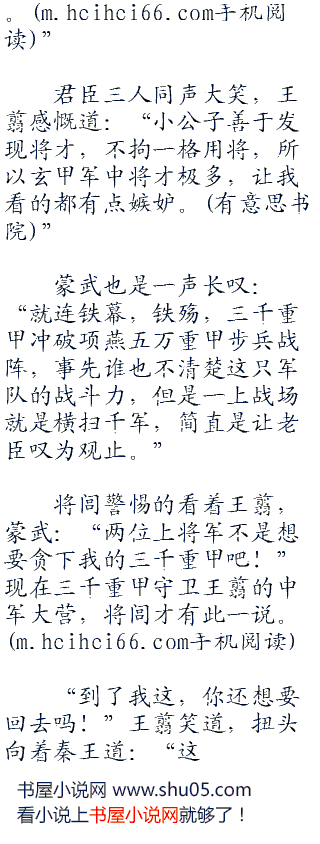 。(m.hcihci66.com手机阅
读)”
君臣三人同声大笑，王
翦感慨道：“小公子善于发
现将才，不拘一格用将，所
以玄甲军中将才极多，让我
看的都有点嫉妒。(有意思书
院)”
蒙武也是一声长叹：
“就连铁幕，铁殇，三千重
甲冲破项燕五万重甲步兵战
阵，事先谁也不清楚这只军
队的战斗力，但是一上战场
就是横扫千军，简直是让老
臣叹为观止。”
将闾警惕的看着王翦，
蒙武：“两位上将军不是想
要贪下我的三千重甲吧！”
现在三千重甲守卫王翦的中
军大营，将闾才有此一说。
(m.hcihci66.com手机阅读)
“到了我这，你还想要
回去吗！”王翦笑道，扭头
向着秦王道：“这
书屋小说网 www.shu05.com
看小说上书屋小说网就够了！